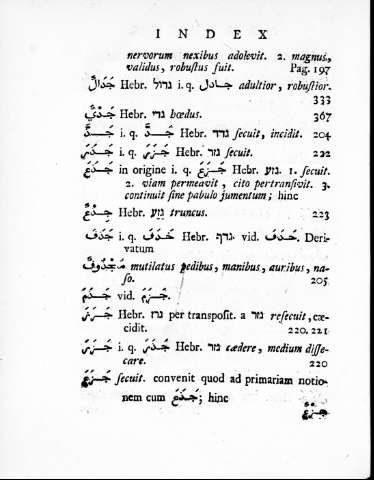 INDEX
nervorum nexibus adolevit. 2. magnus,
validus, robustus fuit. Pag. 197
جَدَالٌ Hebr. גדול i. q. جادل adultior, robustior.
333
جَدْيٌ Hebr. גדי hœdus. 367
جَدَّ i. q. جَدَّ Hebr. גדד secuit, incidit. 204
i. q. Hebr. גזר secuit. 222
جَدَعَ in origine i. q. جَزَعَ Hebr. גזע. 1. secuit.
2. viam permeavit, cito pertransivit. 3.
continuit sine pabulo jumentum; hinc
جِذْعٌ Hebr. גזע truncus. 223
جَدَفَ i. q. Hebr. גדף. vid. Deri-
vatum
مَجْدُوفٌ mutilatus pedibus, manibus, auribus, na-
so. 205
جَذَمَ vid. جَزَمَ.
جَرَزَ Hebr. גרז per transposit. a גזר resecuit, cæ-
cidit. 220. 221
جَزَرَ i. q. Hebr. גזר cædere, medium disse-
care. 220
جَزَعَ secuit. convenit quod ad primariam notio-
nem cum جَدَعَ; hinc
جِزْعٌ